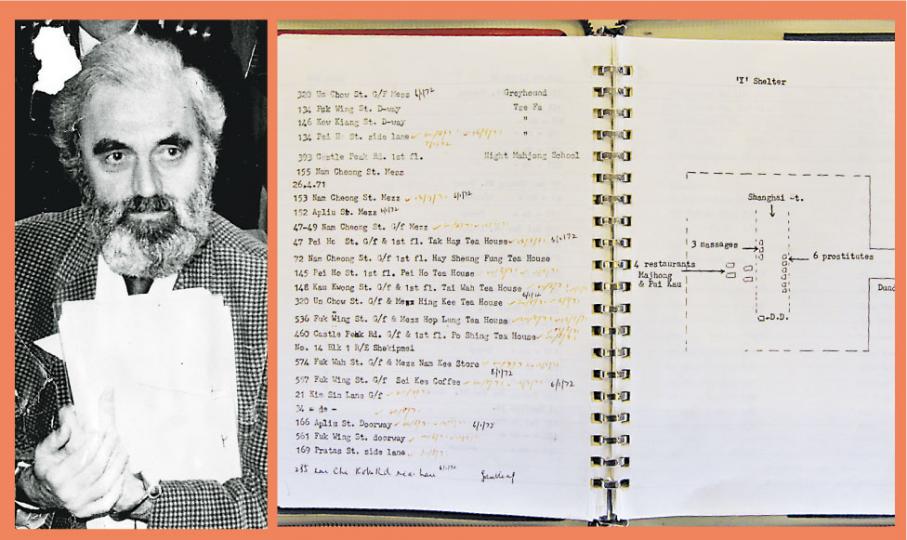 320 Un Chow St. G/F Mezz 6/1/72 Greyhound
134 Fuk Wing St. D-way Tse Fa
146 Kow Kiang St. D-way "
134 Pei Ho St. side lane "
393 Castle Peak Rd. 1st fl. Night Mahjong School
155 Nam Cheong St. Mezz
26.4.71
153 Nam Cheong St. Mezz 6/1/72
152 Apliu St. Mezz 6/1/72
47-49 Nam Cheong St. G/f Mezz
47 Pei Ho St. G/f & 1st fl. Tak Hay Tea House 6/1/72
72 Nam Cheong St. G/f 1st fl. Hay Sheung Fung Tea House
145 Pei Ho St. 1st fl. Pei Ho Tea House
148 Kau Kwong St. G/f 1st fl. Tai Wah Tea House
320 Un Chow St. G/f & Mezz Hing Kee Tea House
536 Fuk Wing St. G/f & Mezz Hop Lung Tea House
460 Castle Peak Rd. G/f & 1st fl. Po Shing Tea House
No. 14 Blk 1 R/E Shekipmei
574 Fuk Wah St. G/f & Mezz Nam Kee Store
597 Fuk Wing St. G/f Sei Kee Coffee 6/1/72
21 Kim Sin Lane G/f
34 - do -
166 Apliu St. Doorway 6/1/72
561 Fuk Wing St. doorway
169 Pratas St. side lane
'Y' Shelter
Shanghai St.
3 massages
6 prostitutes
4 restaurants
Majhong
& Pai Kau
D.D.